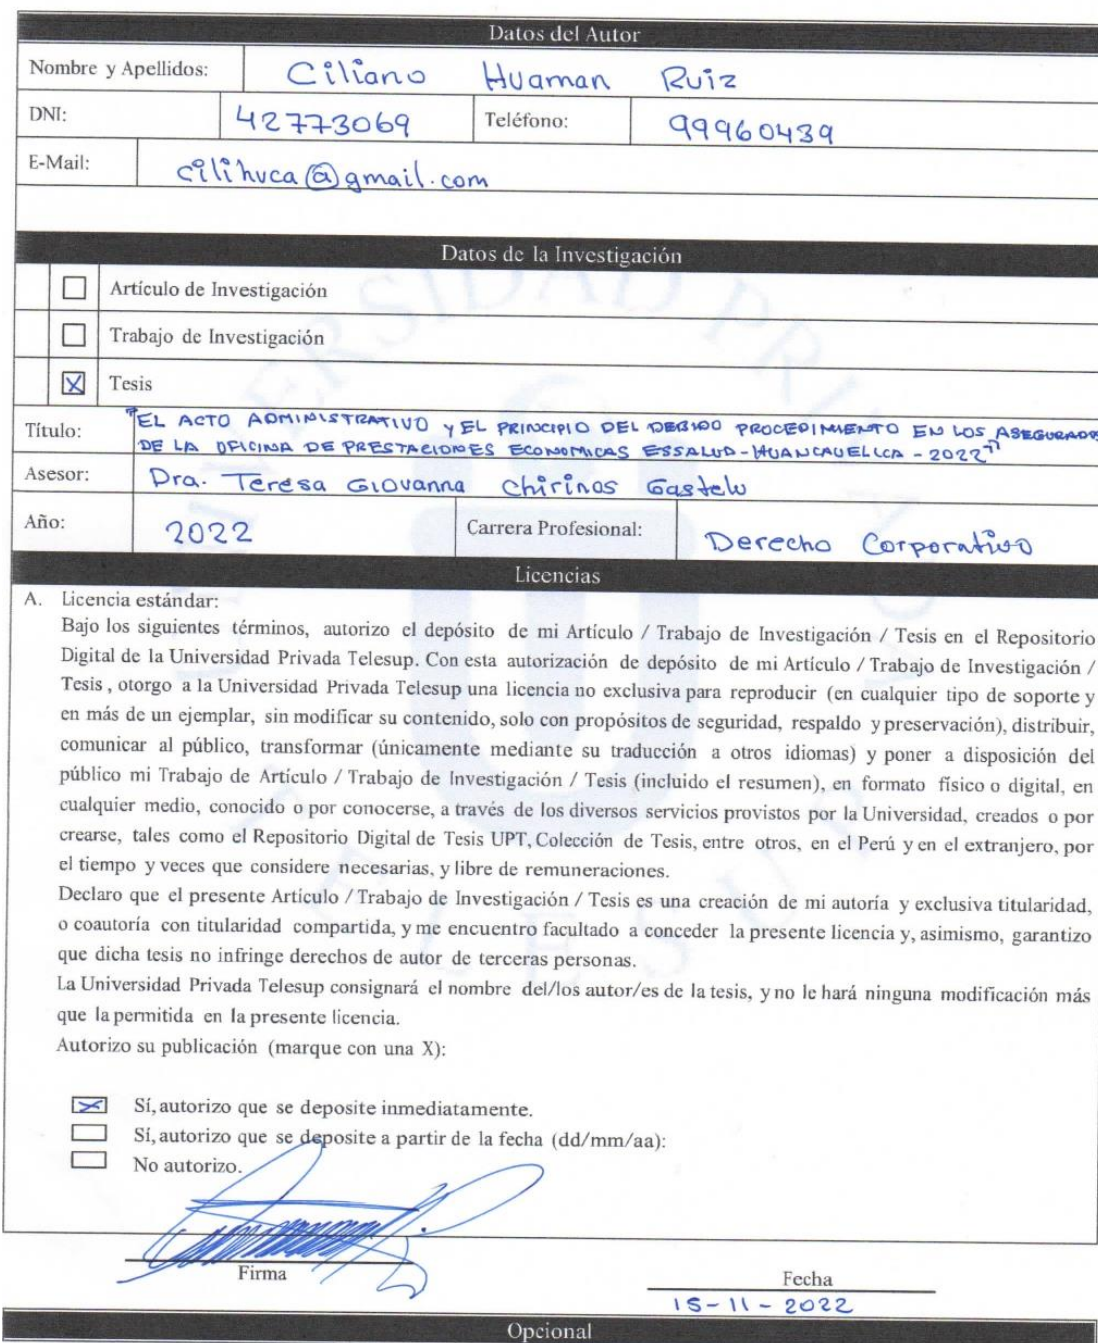 Datos del Autor
Nombre y Apellidos: Ciliano Huaman Ruiz
DNI: 42773069 Teléfono: 99960439
E-Mail: cilihuca@gmail.com
Datos de la Investigación
Artículo de Investigación
Trabajo de Investigación
X Tesis
Título: "EL ACTO ADMINISTRATIVO Y EL PRINCIPIO DEL DEBIDO PROCEDIMIENTO EN LOS ASEGURADOS
DE LA OFICINA DE PRESTACIONES ECONOMICAS ESSALUD-HUANCAVELICA - 2022"
Asesor: Dra. Teresa Giovanna Chirinos Gastelu
Año: 2022 Carrera Profesional: Derecho Corporativo
Licencias
A. Licencia estándar:
Bajo los siguientes términos, autorizo el depósito de mi Artículo / Trabajo de Investigación / Tesis en el Repositorio
Digital de la Universidad Privada Telesup. Con esta autorización de depósito de mi Artículo / Trabajo de Investigación /
Tesis , otorgo a la Universidad Privada Telesup una licencia no exclusiva para reproducir (en cualquier tipo de soporte y
en más de un ejemplar, sin modificar su contenido, solo con propósitos de seguridad, respaldo y preservación), distribuir,
comunicar al público, transformar (únicamente mediante su traducción a otros idiomas) y poner a disposición del
público mi Trabajo de Artículo / Trabajo de Investigación / Tesis (incluido el resumen), en formato físico o digital, en
cualquier medio, conocido o por conocerse, a través de los diversos servicios provistos por la Universidad, creados o por
crearse, tales como el Repositorio Digital de Tesis UPT, Colección de Tesis, entre otros, en el Perú y en el extranjero, por
el tiempo y veces que considere necesarias, y libre de remuneraciones.
Declaro que el presente Artículo / Trabajo de Investigación / Tesis es una creación de mi autoría y exclusiva titularidad,
o coautoría con titularidad compartida, y me encuentro facultado a conceder la presente licencia y, asimismo, garantizo
que dicha tesis no infringe derechos de autor de terceras personas.
La Universidad Privada Telesup consignará el nombre del/los autor/es de la tesis, y no le hará ninguna modificación más
que la permitida en la presente licencia.
Autorizo su publicación (marque con una X):
X Sí, autorizo que se deposite inmediatamente.
Sí, autorizo que se deposite a partir de la fecha (dd/mm/aa):
No autorizo.
Firma
Fecha
15-11-2022
Opcional